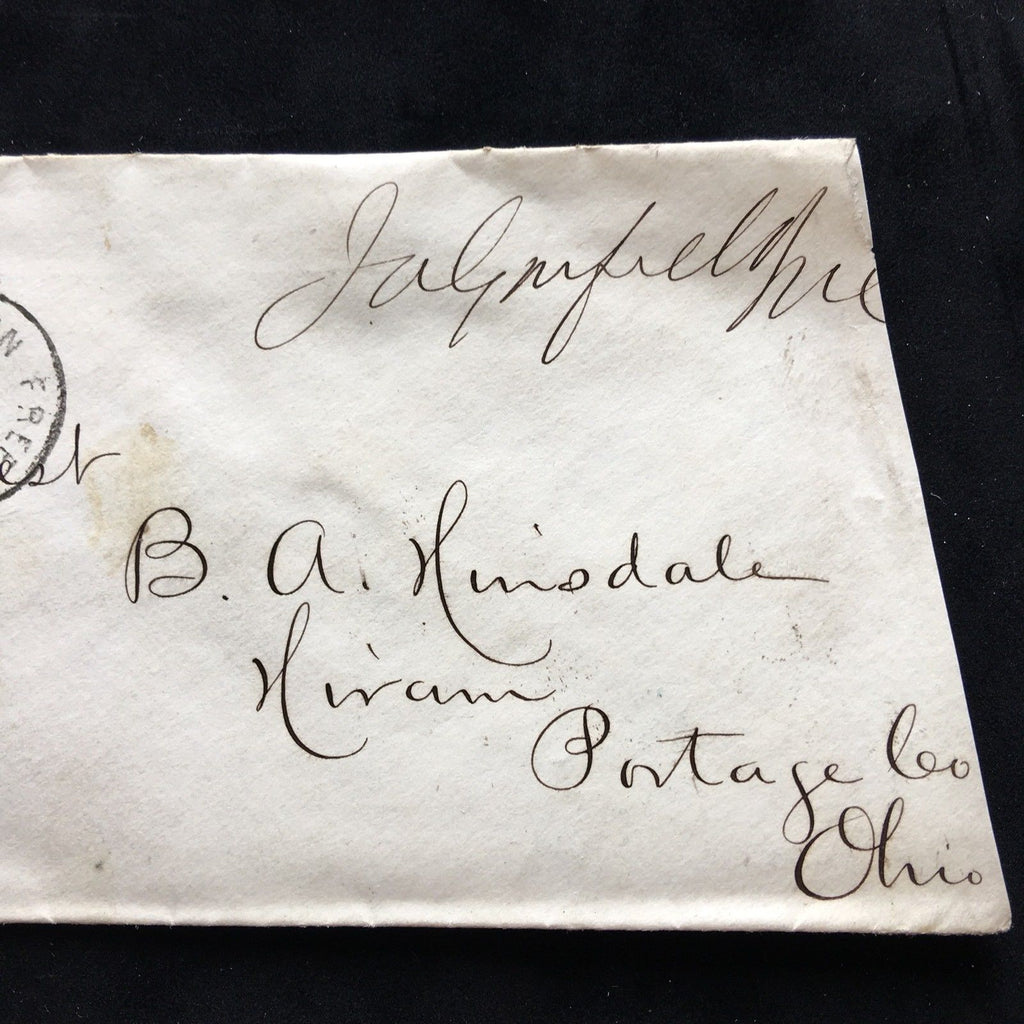 JAGarfield MC
N FREE
est
B. A. Hinsdale
Hiram
Portage Co
Ohio